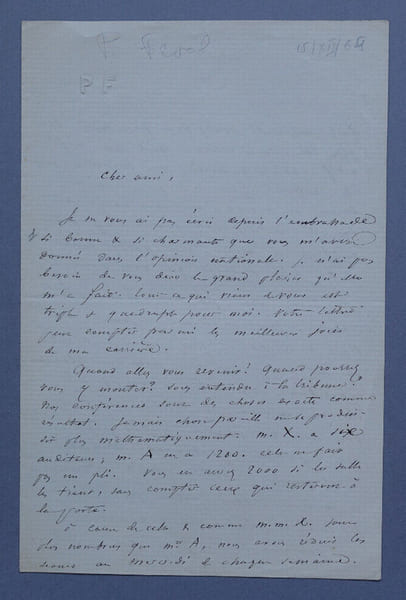 P. Féval
PF
Cher ami,
Je ne vous ai pas écrit depuis l'embrassade
si bonne & si charmante que vous m'avez
donné dans l'opinion nationale. Je n'ai pas
besoin de vous dire le grand plaisir qu'elle
m'a fait. tout ce qui vient de vous est
triple & quadruple pour moi. Votre
peut compter parmi les meilleures joies
de ma carrière.
Quand allez vous revenir? Quand pourrez
vous y monter? vous entendre à la tribune?
Nos conférences sont des choses exactes comme
résultat. Jamais chose pareille ne se produi-
sit plus mathématiquement. M. X. a six
auditeurs; M. A en a 1200. cela ne fait
pas un pli. Vous en aurez 2000 si les salles
les tient, sans compter ceux qui resteront à
la porte.
à cause de cela & comme M.M. X. sont
plus nombreux que Mrs A, nous avons réduit les
au mercredi de chaque semaine.